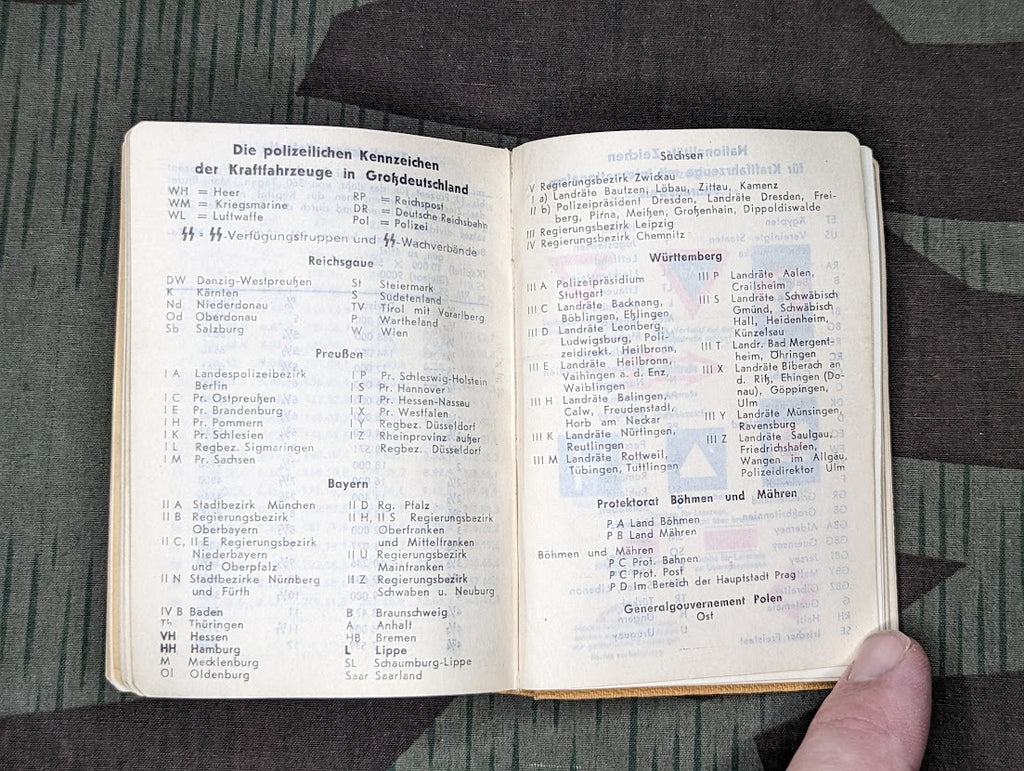 Die polizeilichen Kennzeichen
der Kraftfahrzeuge in Großdeutschland
WH = Heer
WM = Kriegsmarine
WL = Luftwaffe
RP = Reichspost
DR = Deutsche Reichsbahn
Pol = Polizei
ϟϟ = ϟϟ-Verfügungstruppen und ϟϟ-Wachverbände
Reichsgaue
DW Danzig-Westpreußen
K Kärnten
Nd Niederdonau
Od Oberdonau
Sb Salzburg
St Steiermark
S Sudetenland
TV Tirol mit Vorarlberg
P Wartheland
W Wien
Preußen
I A Landespolizeibezirk
Berlin
I C Pr. Ostpreußen
I E Pr. Brandenburg
I H Pr. Pommern
I K Pr. Schlesien
I L Regbez. Sigmaringen
I M Pr. Sachsen
I P Pr. Schleswig-Holstein
I S Pr. Hannover
I T Pr. Hessen-Nassau
I X Pr. Westfalen
I Y Regbez. Düsseldorf
I Z Rheinprovinz außer
Regbez. Düsseldorf
Bayern
II A Stadtbezirk München
II B Regierungsbezirk
Oberbayern
II C, II E Regierungsbezirk
Niederbayern
und Oberpfalz
II N Stadtbezirke Nürnberg
und Fürth
II D Rg. Pfalz
II H, II S Regierungsbezirk
Oberfranken
und Mittelfranken
II U Regierungsbezirk
Mainfranken
II Z Regierungsbezirk
Schwaben u. Neuburg
IV B Baden
Th Thüringen
VH Hessen
HH Hamburg
M Mecklenburg
Ol Oldenburg
B Braunschweig
A Anhalt
HB Bremen
L Lippe
SL Schaumburg-Lippe
Saar Saarland
Sachsen
V Regierungsbezirk Zwickau
I a) Landräte Bautzen, Löbau, Zittau, Kamenz
II b) Polizeipräsident Dresden, Landräte Dresden, Frei-
berg, Pirna, Meißen, Großenhain, Dippoldiswalde
III Regierungsbezirk Leipzig
IV Regierungsbezirk Chemnitz
Württemberg
III A Polizeipräsidium
Stuttgart
III C Landräte Backnang,
Böblingen, Eßlingen
III D Landräte Leonberg,
Ludwigsburg, Poli-
zeidirekt. Heilbronn,
III E Landräte Heilbronn,
Vaihingen a. d. Enz,
Waiblingen
III H Landräte Balingen,
Calw, Freudenstadt,
Horb am Neckar
III K Landräte Nürtingen,
Reutlingen
III M Landräte Rottweil,
Tübingen, Tuttlingen
III P Landräte Aalen,
Crailsheim
III S Landräte Schwäbisch
Gmünd, Schwäbisch
Hall, Heidenheim,
Künzelsau
III T Landr. Bad Mergent-
heim, Öhringen
III X Landräte Biberach an
d. Riß, Ehingen (Do-
nau), Göppingen,
Ulm
III Y Landräte Münsingen,
Ravensburg
III Z Landräte Saulgau,
Friedrichshafen,
Wangen im Allgau,
Polizeidirektor Ulm
Protektorat Böhmen und Mähren
P A Land Böhmen
P B Land Mähren
Böhmen und Mähren
P C Prot. Bahnen
P C Prot. Post
P D Im Bereich der Hauptstadt Prag
Generalgouvernement Polen
Ost